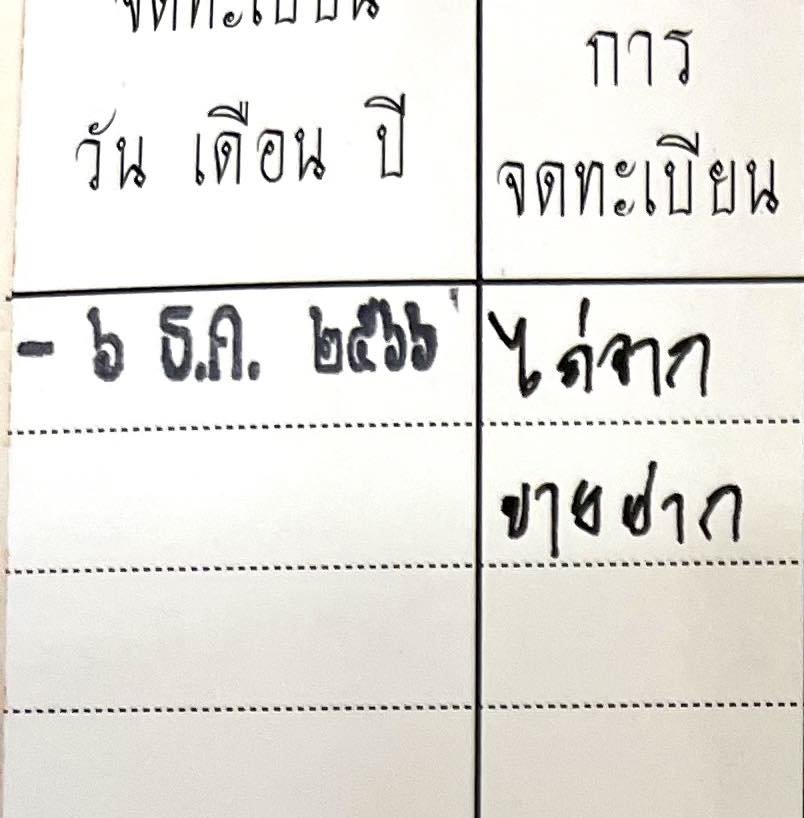 จดทะเบียน
วัน เดือน ปี
การ
จดทะเบียน
- ๖ ธ.ค. ๒๕๖๖
ไถ่จาก
ขายฝาก